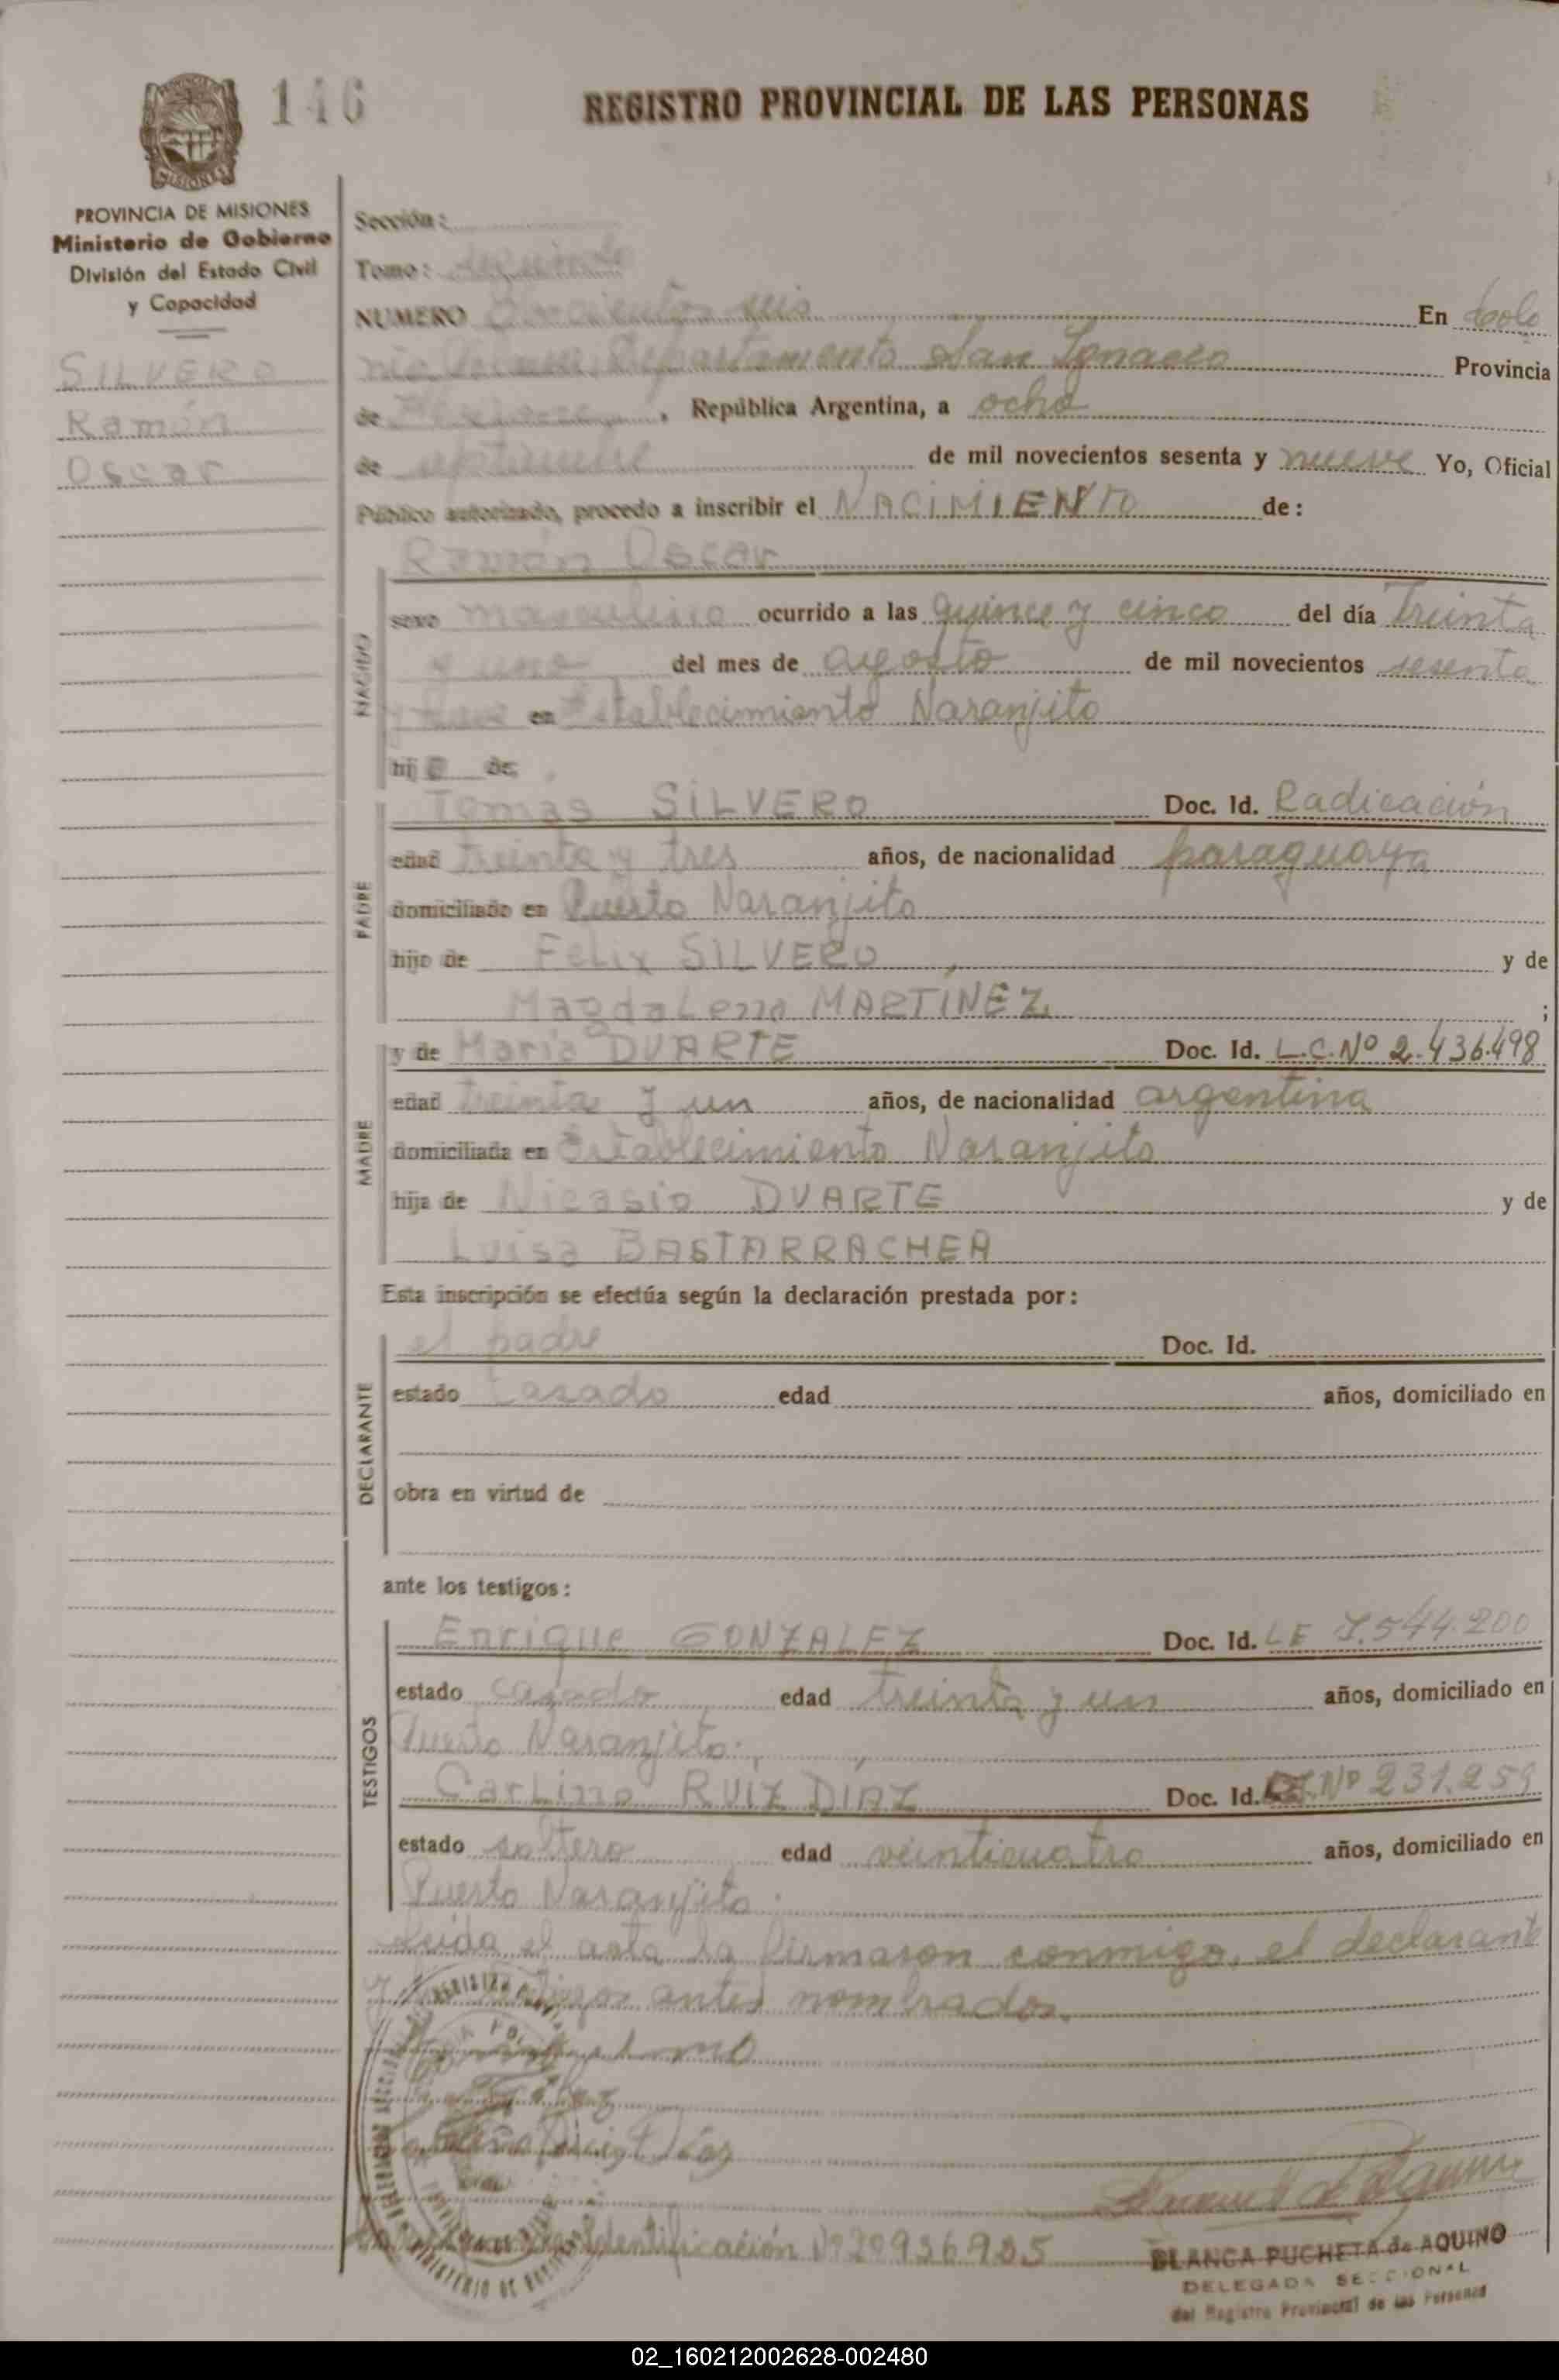 146
REGISTRO PROVINCIAL DE LAS PERSONAS
MISIONES
PROVINCIA DE MISIONES
Ministerio de Gobierno
División del Estado Civil
y Capacidad
SILVERO
Ramón
Oscar
Sección:
Tomo: segundo
NUMERO Doscientos seis En Colo
Departamento San Ignacio Provincia
de Misiones, República Argentina, a ocho
de septiembre de mil novecientos sesenta y nueve Yo, Oficial
Público autorizado, procedo a inscribir el NACIMIENTO de:
NACIDO
Ramón Oscar
sexo masculino ocurrido a las quince y cinco del día treinta
y uno del mes de agosto de mil novecientos sesenta
y nueve en Establecimiento Naranjito
hijo de
PADRE
Tomas SILVERO Doc. Id. Radicación
edad treinta y tres años, de nacionalidad paraguaya
domiciliado en Puerto Naranjito
hijo de Felix SILVERO y de
Magdalena MARTÍNEZ ;
MADRE
y de María DUARTE Doc. Id. L.C.Nº 2.436.498
edad treinta y un años, de nacionalidad argentina
domiciliada en Establecimiento Naranjito
hija de Nicasio DUARTE y de
Luisa BASTARRACHEA
Esta inscripción se efectúa según la declaración prestada por:
DECLARANTE
el padre Doc. Id.
estado casado edad años, domiciliado en
obra en virtud de
ante los testigos:
TESTIGOS
Enrique GONZALEZ Doc. Id. LE 7.544.200
estado casado edad treinta y un años, domiciliado en
Puerto Naranjito
Carlino RUIZ DÍAZ Doc. Id. Nº 231.259
estado soltero edad veinticuatro años, domiciliado en
Puerto Naranjito
Leída el acta la firmaron conmigo, el declarante
y los testigos antes nombrados.
Identificación Nº 20936905
BLANCA PUCHETA de AQUINO
DELEGADA SECCIONAL
del Registro Provincial de las Personas
02_160212002628-002480